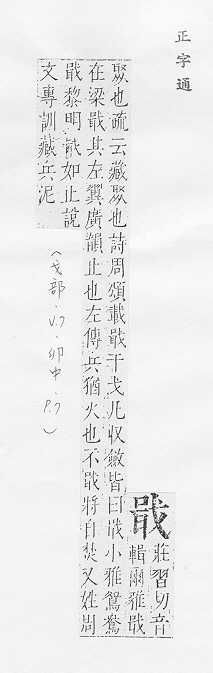 正字通
戢
莊習切音
輯爾雅戢
聚也疏云藏聚也詩周頌載戢干戈凡収斂皆曰戢小雅鴛鴦
在梁戢其左翼廣韻止也左傳兵猶火也不戢將自焚又姓周
戢黎明戢如止說
文專訓藏兵泥
（戈部．V.7．卯中．P.7）